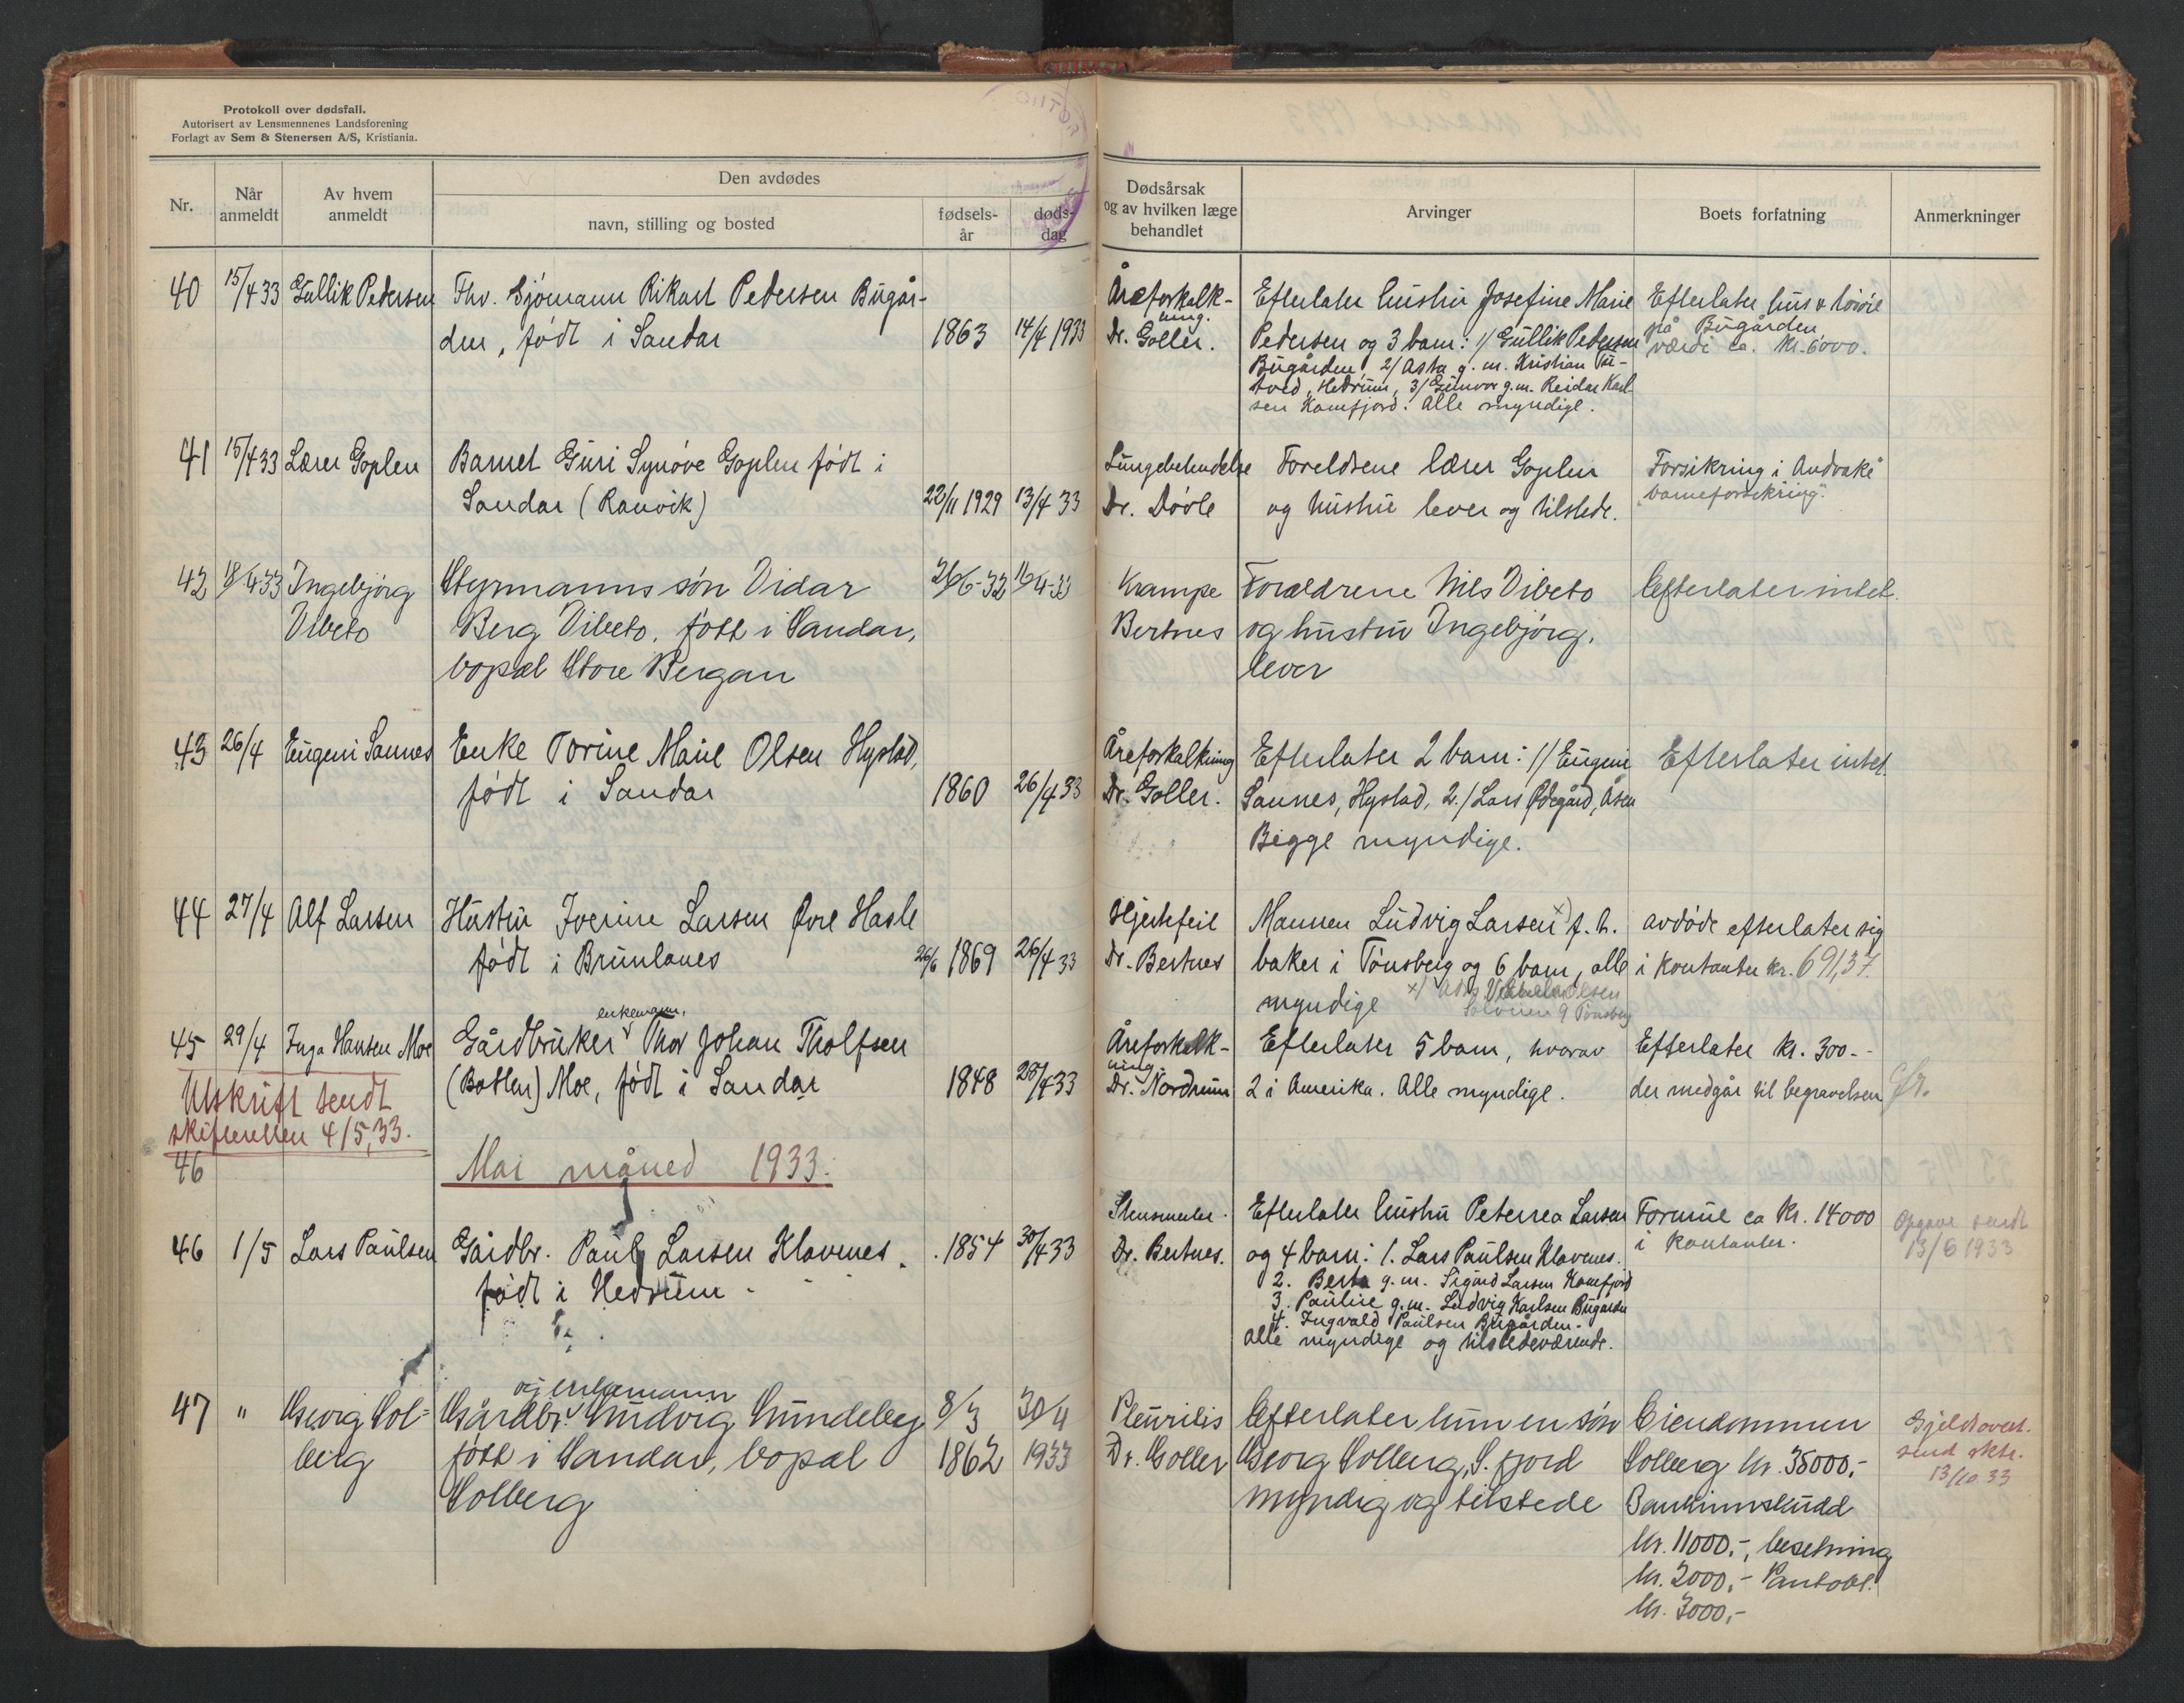 Protokoll over dødsfall.
Autorisert av Lensmennenes Landsforening
Forlagt av Sem & Stenersen A/S, Kristiania.
Nr.
Når
anmeldt
Av hvem
anmeldt
Den avdødes
navn, stilling og bosted
fødsels-
år
døds-
dag
Dødsårsak
og av hvilken læge
behandlet
Arvinger
Boets forfatning
Anmerkninger
40 15/4 33 Gullik Pedersen
Fhv. Sjømann Rikart Pedersen Bugår-
den, født i Sandar
1863 14/4 1933
Åreforkalk-
ning.
Dr. Goller.
Efterlater hustru Josefine Marie
Pedersen og 3 barn: 1/ Gullik Pedersen
Bugården, 2/ Asta g. m. Kristian
tved, Hedrum, 3/ Gunvor g.m. Reidar Karl
sen Kamfjord. Alle myndige.
Efterlater hus &
på Bugården
værdi ca. kr. 6000.
41 15/4 33 Lærer Goplen
Barnet Guri Synøve Goplen født i
Sandar (Ranvik)
22/11 1929 13/4 33
Lungebetendelse
Dr. Døvle
Foreldrene lærer Goplen
og hustru lever og tilstede.
Forsikring i Andvake
"barneforsikring".
42 18/4-33 Ingebjørg
Vibeto
Styrmanns søn Vidar
Berg Vibeto, født i Sandar,
bopæl Store Bergan
26/6-32 16/4-33
Krampe
Bertnes
Forældrene Nils Vibeto
og hustru Ingebjørg.
lever
Efterlater intet.
43 26/4 Eugeni Sannes
Enke Torine Marie Olsen Hystad,
født i Sandar
1860 26/4 33
Åreforkalkning
Dr. Goller.
Efterlater 2 barn: 1/ Eugeni
Sannes, Hystad, 2./ Lars Ødegård, Åsen
Begge myndige.
Efterlater intet.
44 27/4 Alf Larsen
Hustru Iverine Larsen Øvre Hasle
født i Brunlanes
26/6 1869 26/4 33
Hjertefeil
Dr. Bertnes
Mannen Ludvig Larsen x) f. h.
baker i Tønsberg og 6 barn, alle
myndige
x) Olsen
9 Tønsberg
avdøde efterlater sig
i kontanter kr. 691,37.
45 29/4 Inga Hansen Moe
enkemann,
Gårdbruker Thor Johan Tholfsen
(Botten) Moe, født i Sandar
1848 28/4 33
Åreforkalk-
ning.
Dr. Nordrum
Efterlater 5 barn, hvorav
2 i Amerika. Alle myndige.
Efterlater kr. 300.-
der medgår til begravelsen
Utskrift sendt
skifteretten 4/5,33.
46
Mai måned 1933.
46 1/5 Lars Paulsen
Gårdbr. Paul Larsen Klavenes.
født i Hedrum.
1854 30/4 33
Dr. Bertnes.
Efterlater hustru Peterrea Larsen
og 4 barn: 1. Lars Paulsen Klavenes.
2. Berta g. m. Sigurd Larsen Kamfjord
3. Pauline g. m. Ludvig Karlsen Bugården
4. Ingvald Paulsen Bugården.
alle myndige og tilstedeværende.
Formue ca kr. 14000
i kontanter.
Opgave sendt
13/6 1933
47 " Georg Sol-
berg
og enkemann
Gårdbr. Ludvig Lundeberg
født i Sandar, bopæl
Solberg
8/3
1862
30/4
1933
Pleuritis
Dr. Goller
Efterlater kun en søn
Georg Solberg, S. fjord
myndig og tilstede
Eiendommen
Solberg kr. 35000,-
Bankinnskudd
kr. 11000,-, besetning
kr. 2000,- Pantobl.
kr. 3000,-
Gjeldsovert.
send skte.
13/10.33